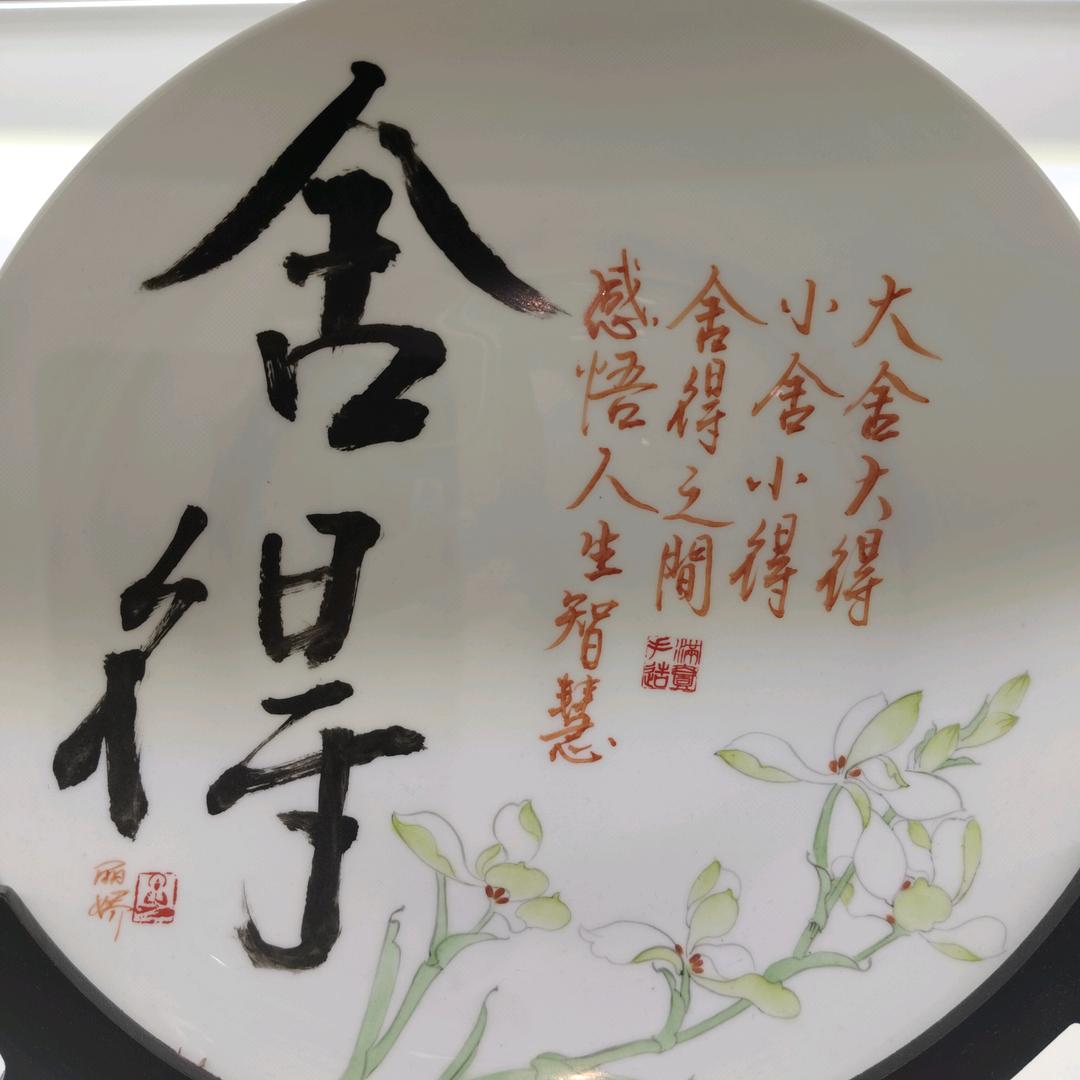 舍得
大舍大得
小舍小得
舍得之間
感悟人生智慧
丽娇
滿窑
手造